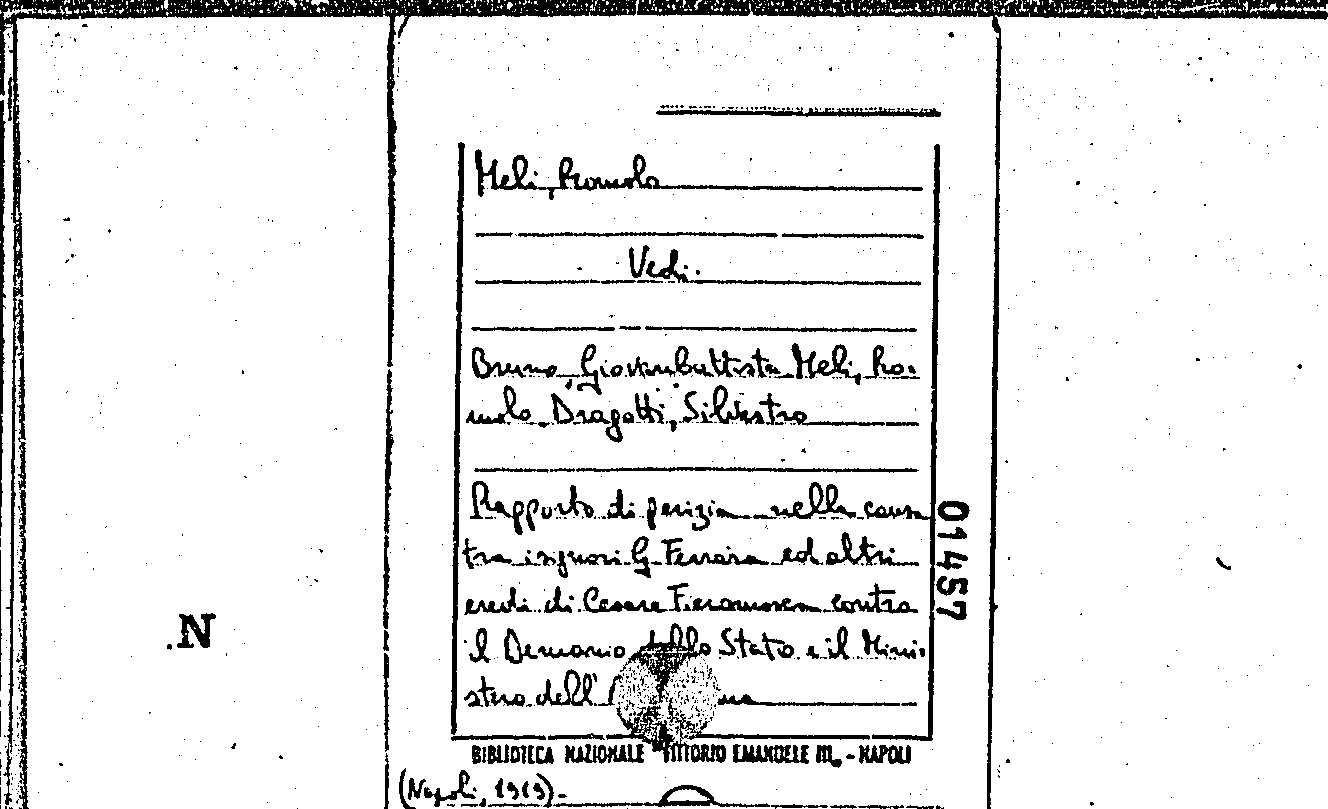 Meli, Romolo
Vedi.
Bruno, Giovanbattista Meli, Ro-
molo. Dragotti, Silvestro
Rapporto di perizia nella causa
tra i signori G. Ferrara ed altri
eredi di Cesare Fieramosca contro
il Demanio dello Stato e il Mini-
stero dell'
01457
.N
BIBLIOTECA NAZIONALE "VITTORIO EMANUELE III" - NAPOLI
(Napoli, 1919)-